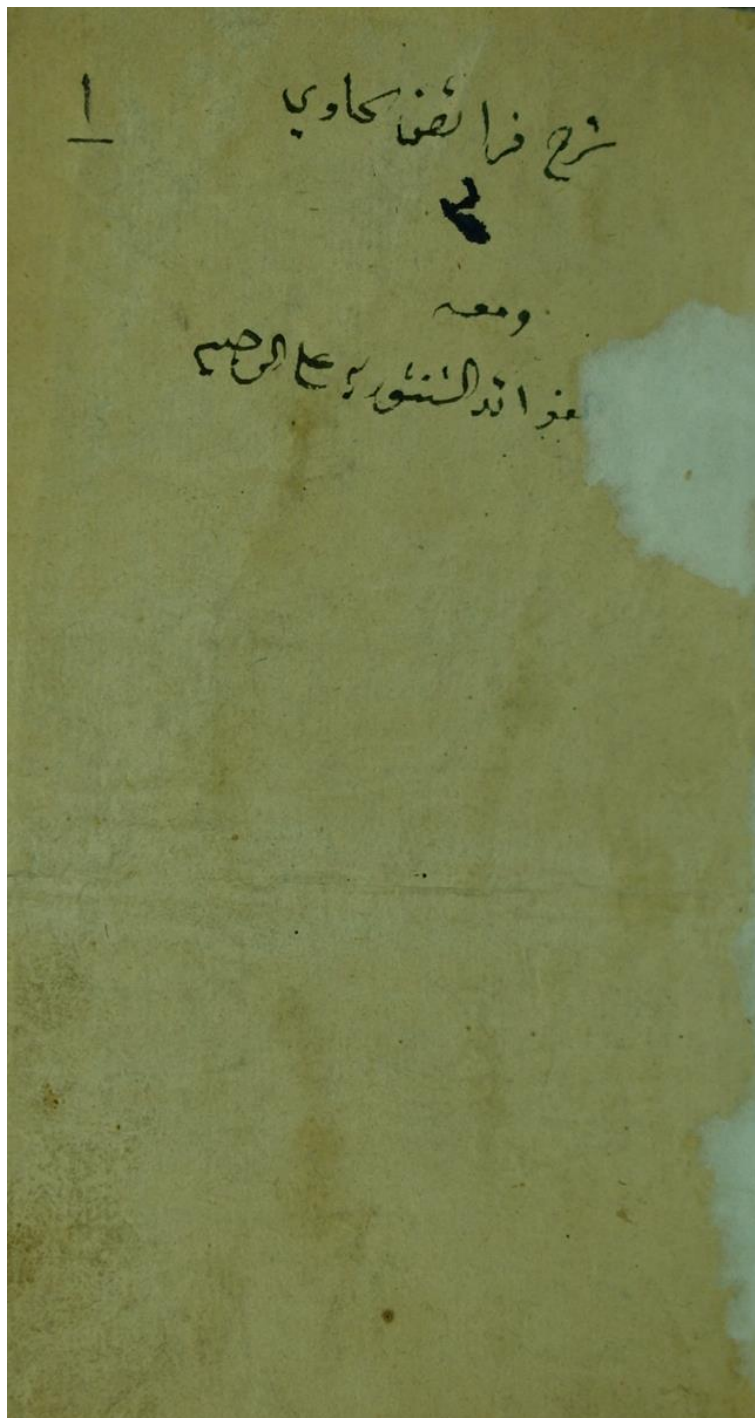 ١
شرح فرائض الحاوي
ومعه
الفوائد الشنشورية على الرحبية